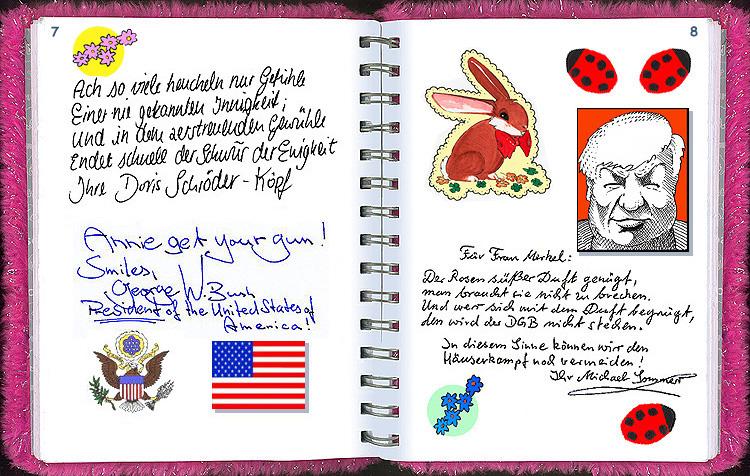 7
Ach so viele heucheln nur Gefühle
Einer nie gekannten Innigkeit;
Und in dem zerstreuenden Gewühle
Endet schnell der Schwur der Ewigkeit
Ihre Doris Schröder-Köpf
Annie get your gun!
Smiles,
George W. Bush
President of the United States of
America!!
8
Für Frau Merkel:
Der Rosen süßer Duft genügt,
man braucht sie nicht zu brechen.
Und wer sich mit dem Duft begnügt,
den wird der DGB nicht stechen.
In diesem Sinne können wir den
Häuserkampf noch vermeiden!
Ihr Michael Sommer